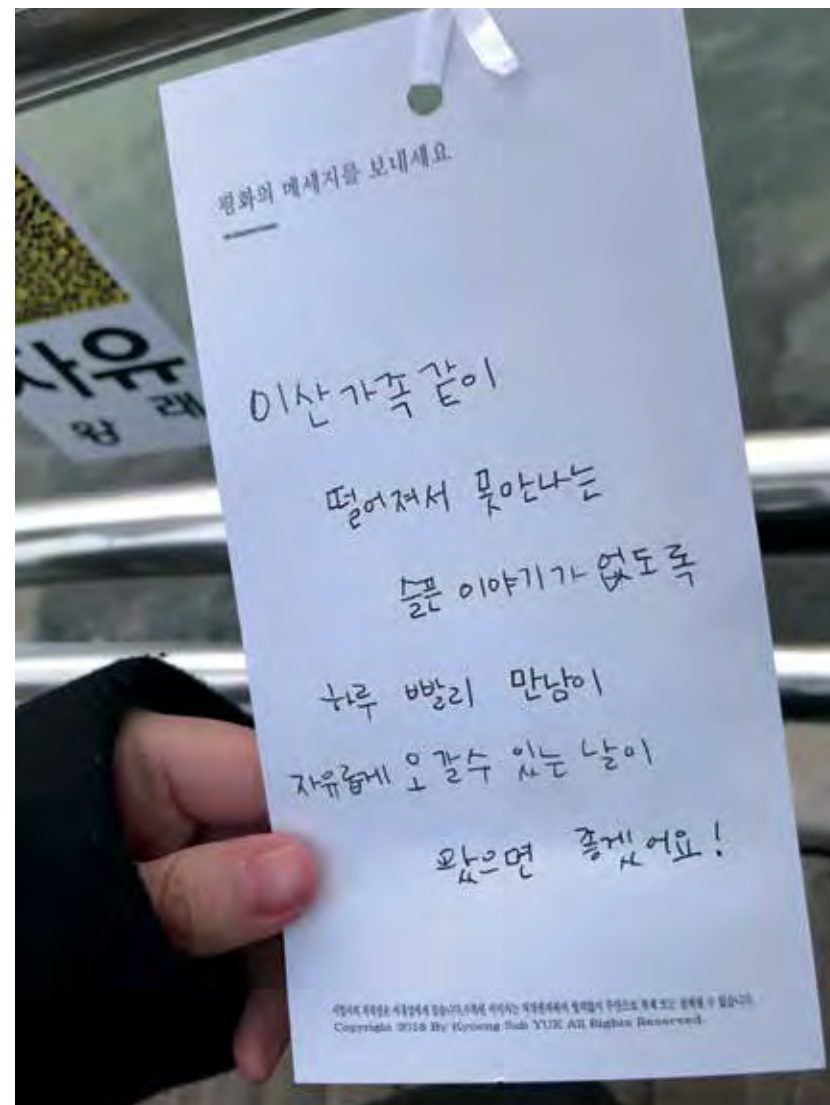 평화의 메세지를 보내세요
자유
왕래
이산가족같이
떨어져서 못만나는
슬픈 이야기가 없도록
하루 빨리 만남이
자유롭게 오갈수 있는 날이
왔으면 좋겠어요!
Copyright 2018 By Kyoung Sub YUK All Rights Reserved.